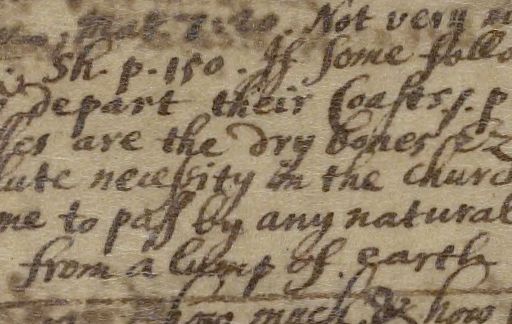 Mat. 7:20. Not very
Sh. p. 150. If some follo
depart their Coasts, s. p
es are the dry bones, Ez
lute necessity in the churc
me to pass by any natural
from a lump of earth
much & how